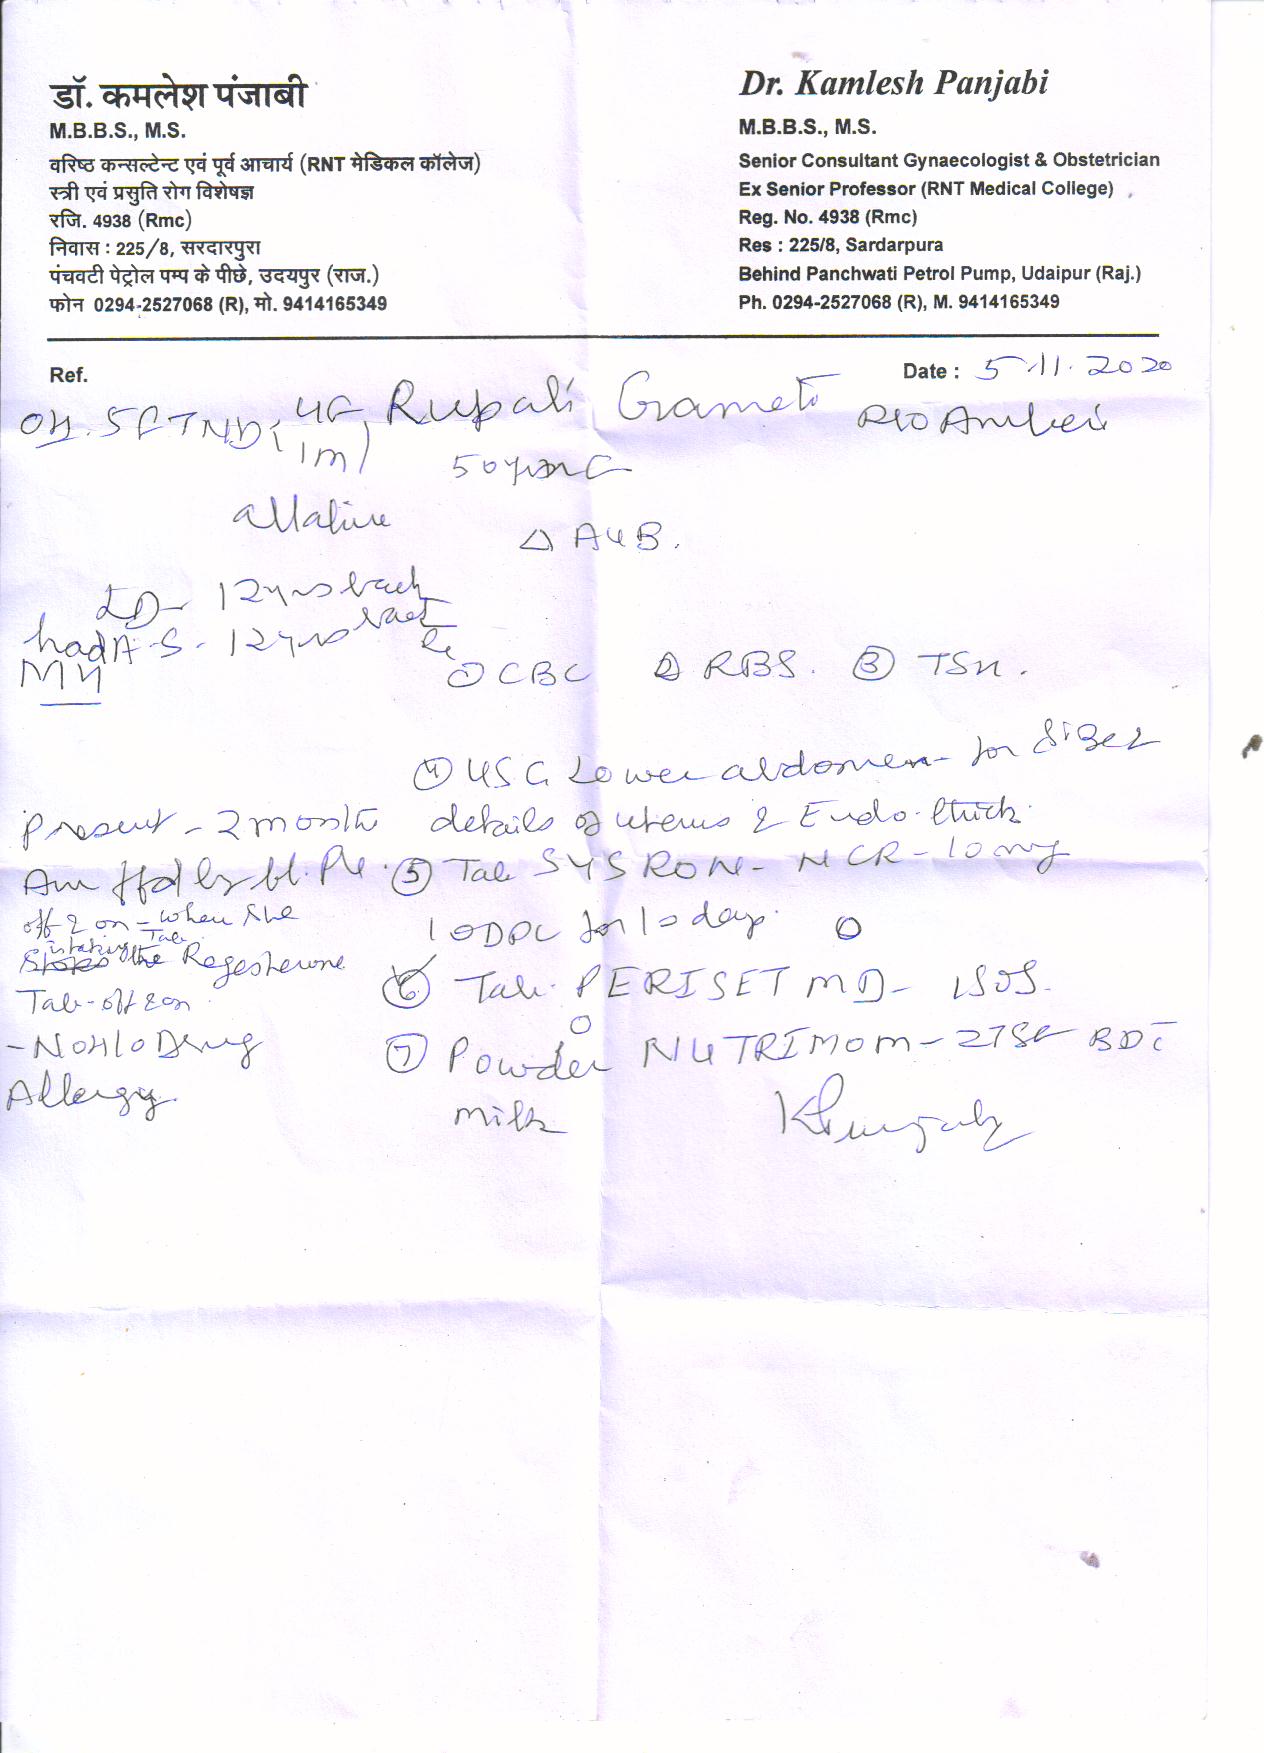 डॉ. कमलेश पंजाबी
M.B.B.S., M.S.
वरिष्ठ कन्सल्टेन्ट एवं पूर्व आचार्य (RNT मेडिकल कॉलेज)
स्त्री एवं प्रसुति रोग विशेषज्ञ
रजि. 4938 (Rmc)
निवास : 225/8, सरदारपुरा
पंचवटी पेट्रोल पम्प के पीछे, उदयपुर (राज.)
फोन 0294-2527068 (R), मो. 9414165349
Dr. Kamlesh Panjabi
M.B.B.S., M.S.
Senior Consultant Gynaecologist & Obstetrician
Ex Senior Professor (RNT Medical College)
Reg. No. 4938 (Rmc)
Res : 225/8, Sardarpura
Behind Panchwati Petrol Pump, Udaipur (Raj.)
Ph. 0294-2527068 (R), M. 9414165349
Ref.
Date : 5.11.2020
Rupali Grameti
OH. 5FTND (4F, 1M)
all alive
△ AUB.
LD - 12 yrs back
had A.S - 12 yrs back
MH
① CBC ② RBS. ③ TSH.
④ USG Lower abdomen - for
details of uterus & Endo. thick.
Present - 2 month
⑤ Tab SYSRON - N CR - 10 mg
for 10 days.
off & on - when she
is taking Tab.
the Regesterone
Tab - off & on
⑥ Tab. PERISET MD - SOS.
- No H/o Drug
Allergy.
⑦ Powder NUTRIMOM - 2TSF BD c̄
milk